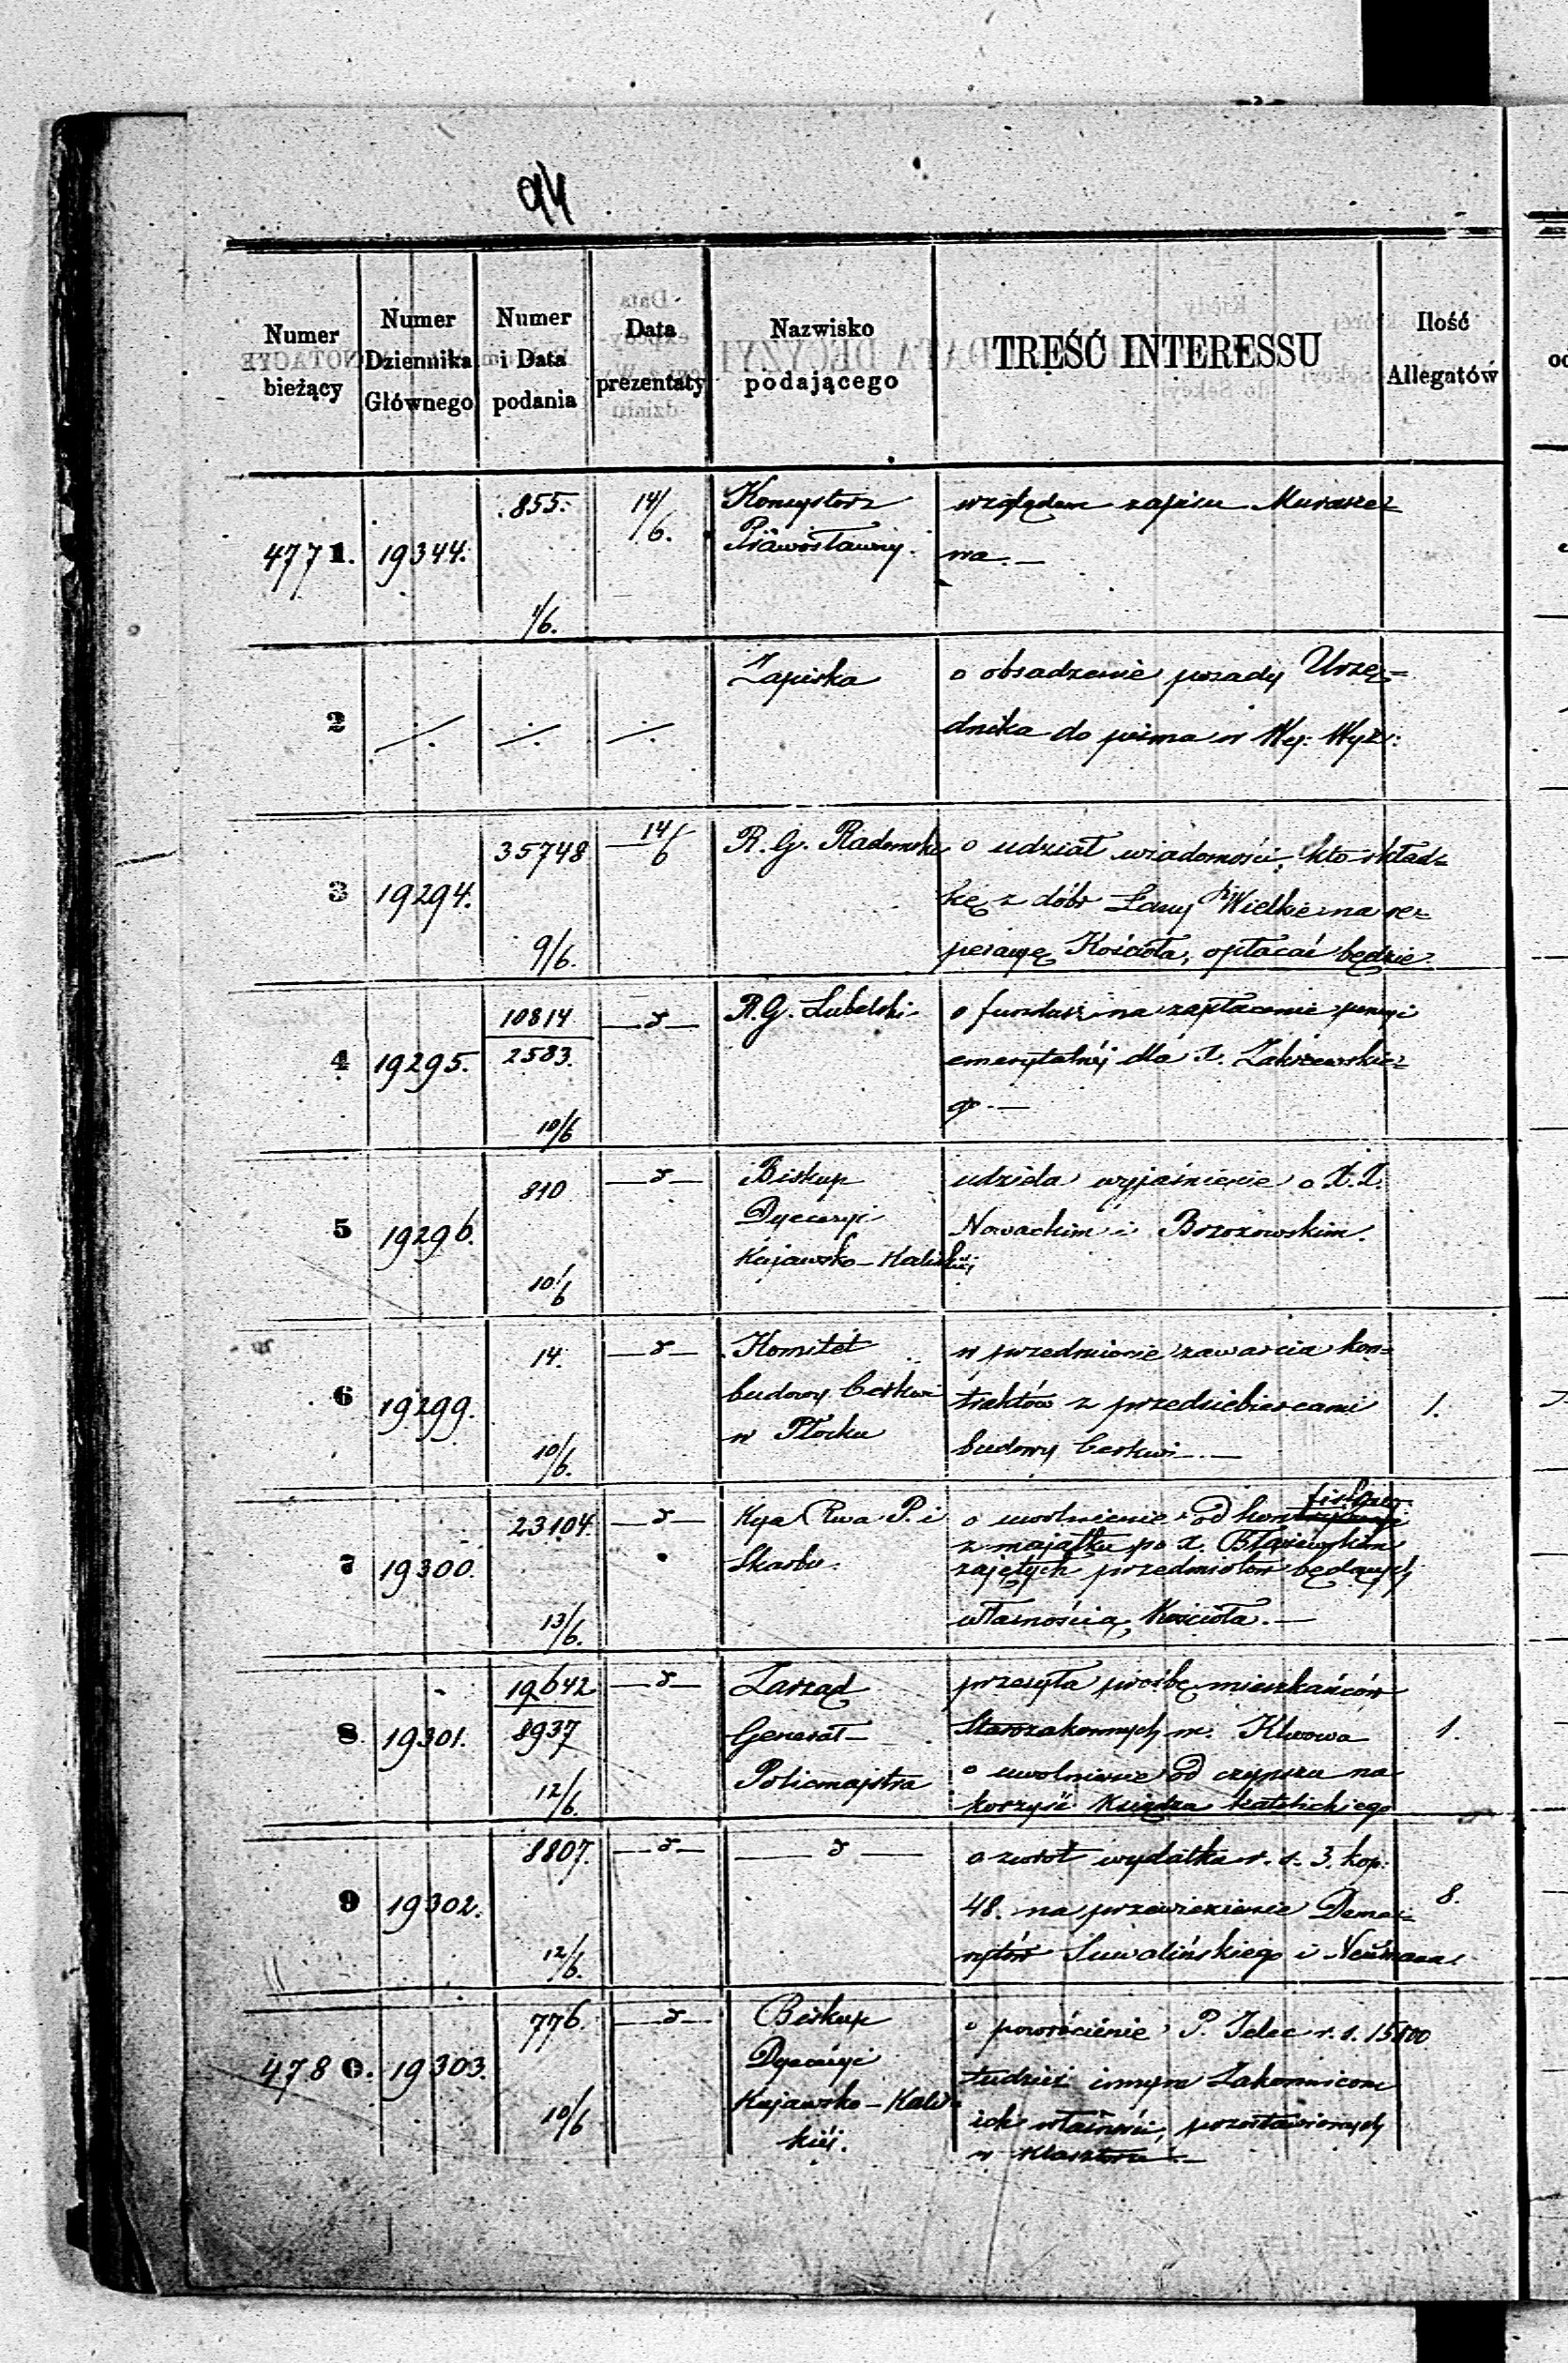 94
Numer bieżący | Numer Dziennika Głównego | Numer i Data podania | Data prezentaty | Nazwisko podającego | TREŚĆ INTERESSU | Ilość Allegatów
4771. 19344. 855. 14/6. Konsystorz względem zapisu Murasze=
Prawosławny. wa. —
1/6.
2 ./. ./. ./. Zapiska o obsadzenie posady Urzę=
dnika do pisma w Wy: Wyz:
3 19294. 35748 14/6 R. G. Radomski o udział wiadomości, kto skład=
kę z dóbr Łany Wielkie na re=
9/6. peracyę Kościoła, opłacać będzie
4 19295. 10814 — d — R. G. Lubelski o fundusz na zapłacenie pensyi
2583. emerytalnéj dla X. Zakrzewskie=
10/6 go. —
5 19296. 810 — d — Biskup udziela wyjaśnienie o X. X.
Dyecezyi Nowackim i Brzozowskim.
10/6 Kujawsko-Kaliskiéj
6 19299. 14. — d — Komitet w przedmiocie zawarcia kon=
budowy Cerkwi traktów z przedsiebiorcami 1.
10/6. w Płocku budowy Cerkwi. —
7 19300. 23104. — d — Kya Rwa P. i o uwolnienie od
Skarbu. z majątku po X. Błażewskim
zajętych przedmiotów będących
13/6. własnością Kościoła. —
8 19301. 19642 — d — Zarząd przesyła prośbę mieszkańców
8937 Generał- Starozakonnych m. Klwowa 1.
12/6. Policmajstra o uwolnienie od czynszu na
korzyść Księdza katolickiego
9 19302. 8807. — d — — d — o zwrot wydatku r. s. 3. kop.
48. na przewiezienie Deme= 8.
rytów Suwalińskiego i Neümana.
12/6.
4780. 19303. 776. — d — Biskup o powrócenie P. Jelec r. s. 15800
Dyecezyi tudzież innym Zakonnicom
10/6 Kujawsko-Kalis= ich własności, pozostawionych
kiéj. w Klasztorze. —